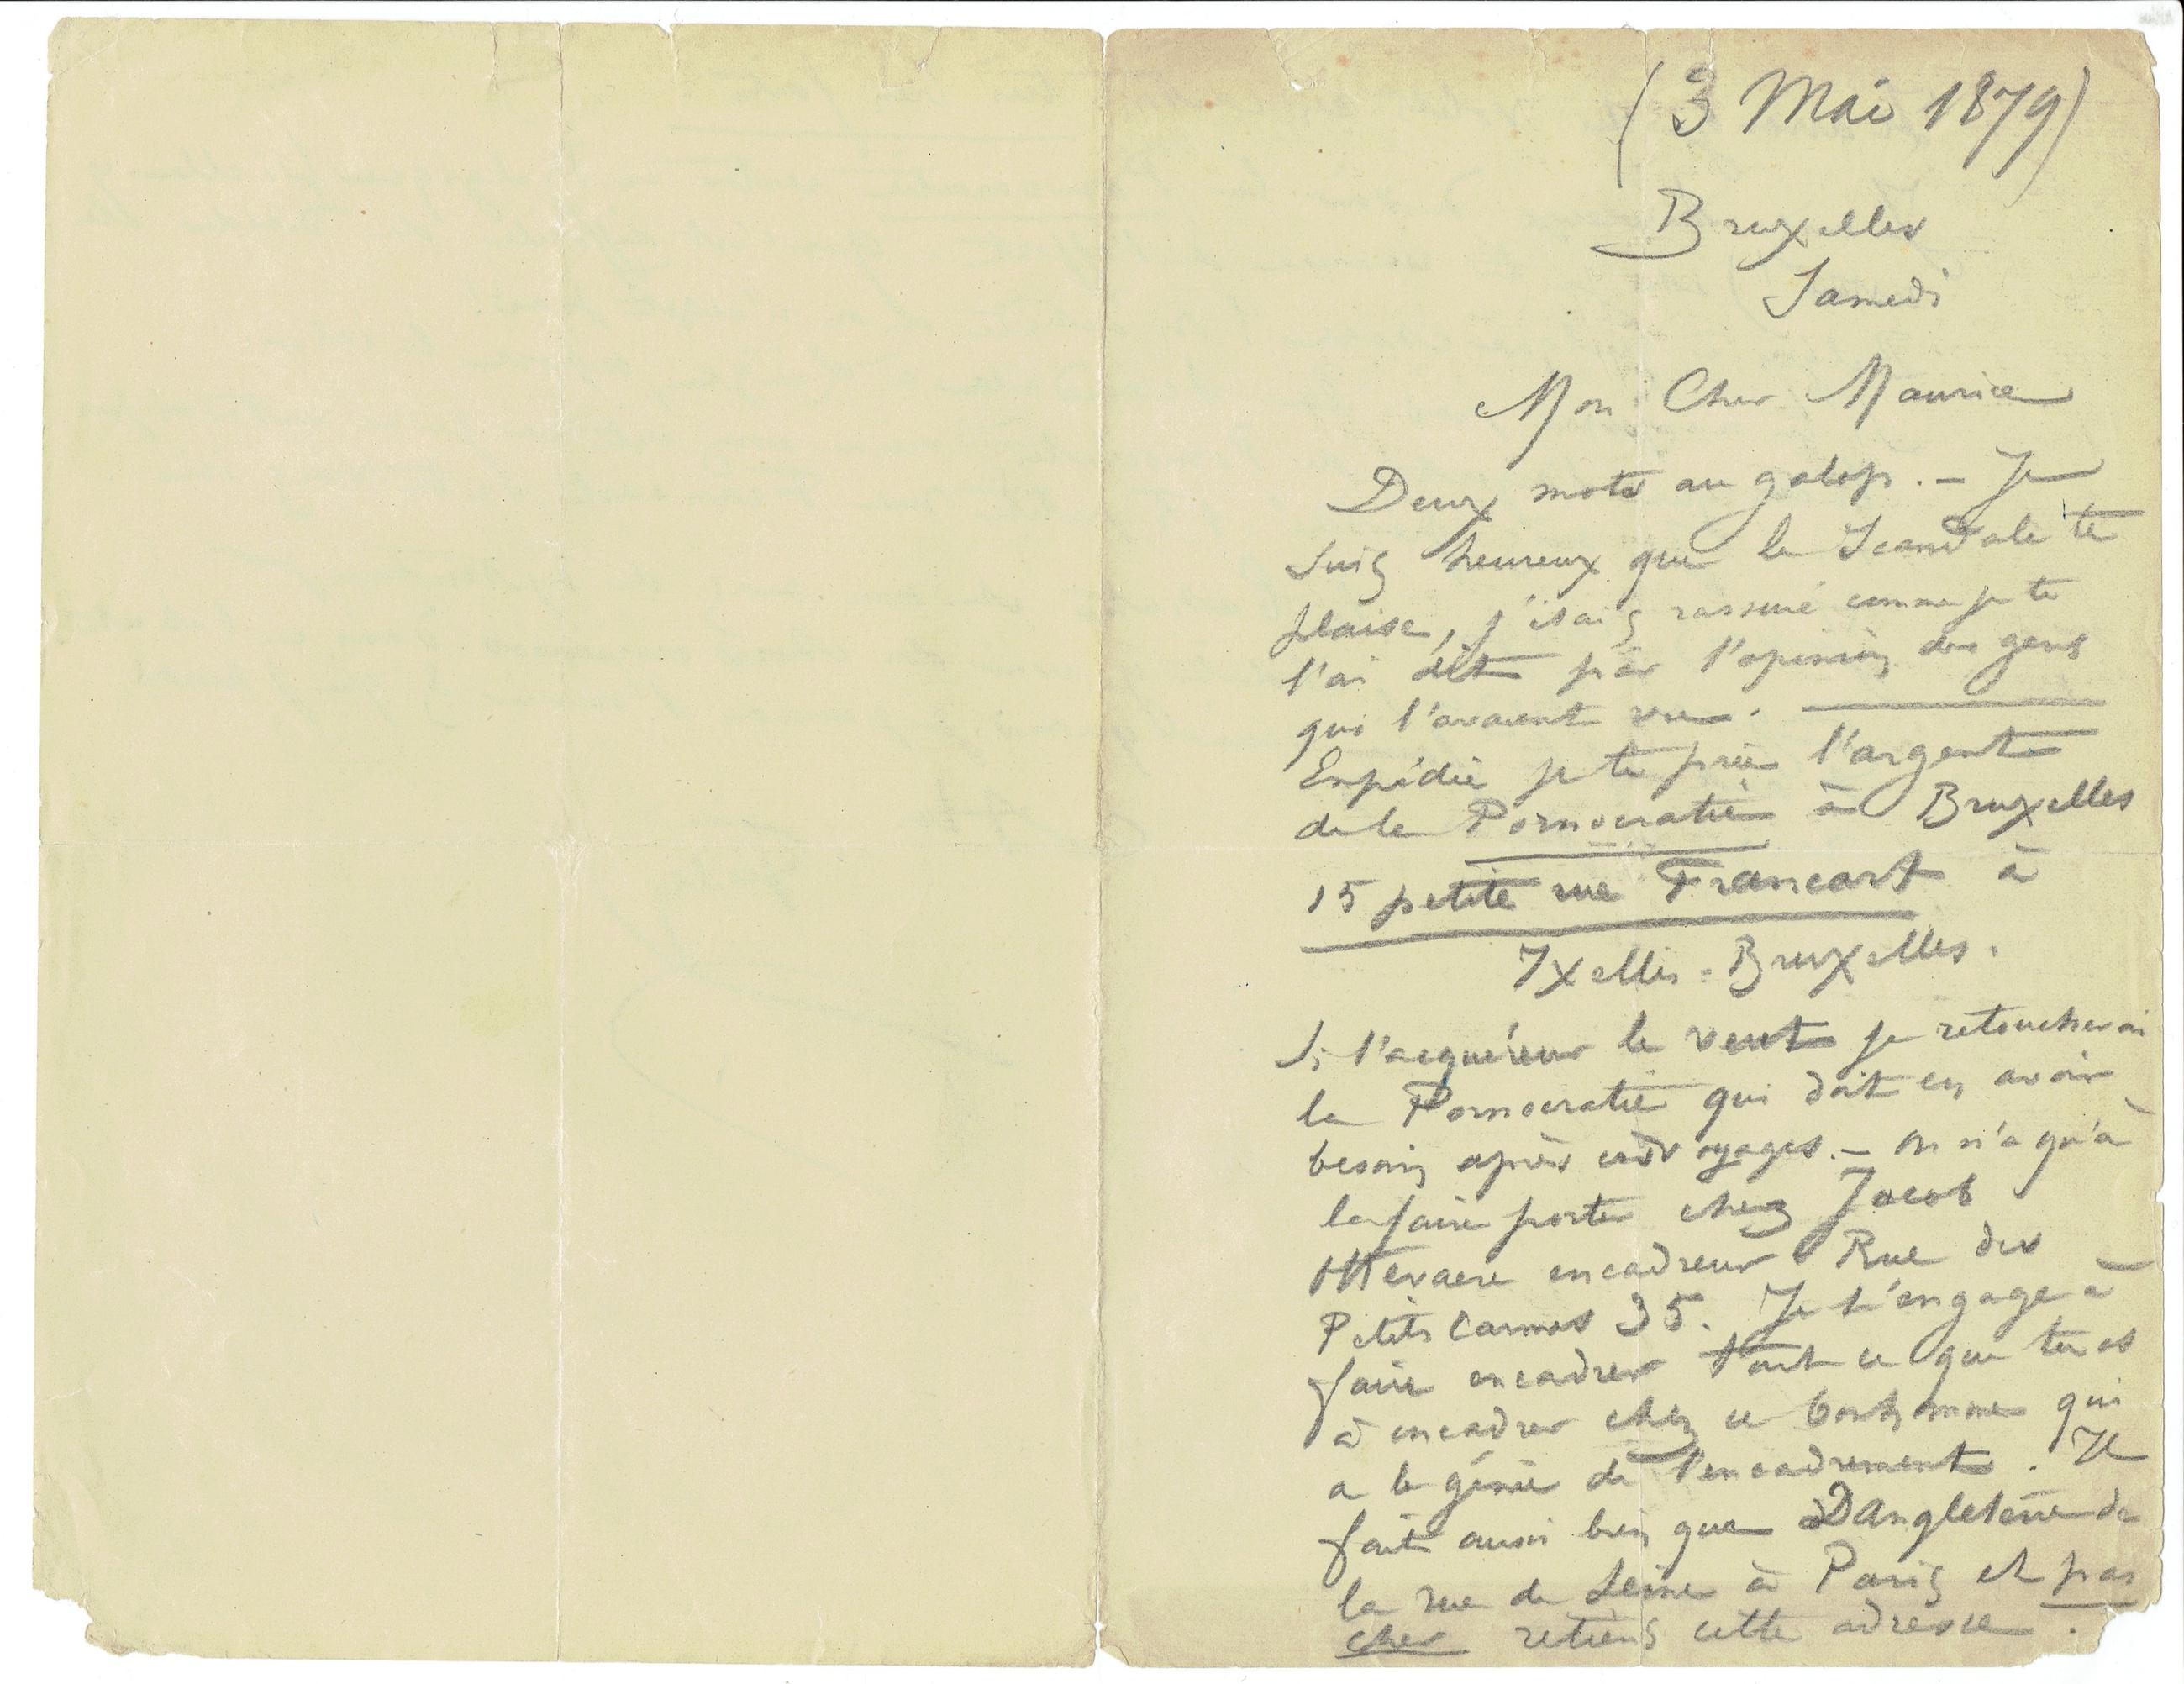 (3 Mai 1879)
Bruxelles
Samedi
Mon Cher Maurice
Deux mots au galop. — Je
suis heureux que le Scandale te
plaise, j'étais rassuré comme je te
l'ai dit par l'opinion des gens
qui l'avaient vu. —
Expédie je te prie l'argent
de la Pornocratie à Bruxelles
15 petite rue Francart à
Ixelles - Bruxelles.
Si l'acquéreur le veut je retoucherai
la Pornocratie qui doit en avoir
besoin après ces voyages. — On n'a qu'à
la faire porter chez Jacob
encadreur Rue des
Petits Carmes 35. Je t'engage à
faire encadrer tout ce que tu as
à encadrer chez ce bonhomme qui
a le génie de l'encadrement. Il
fait aussi bien que Dangleterre de
la rue de Seine à Paris et pas
cher retiens cette adresse.